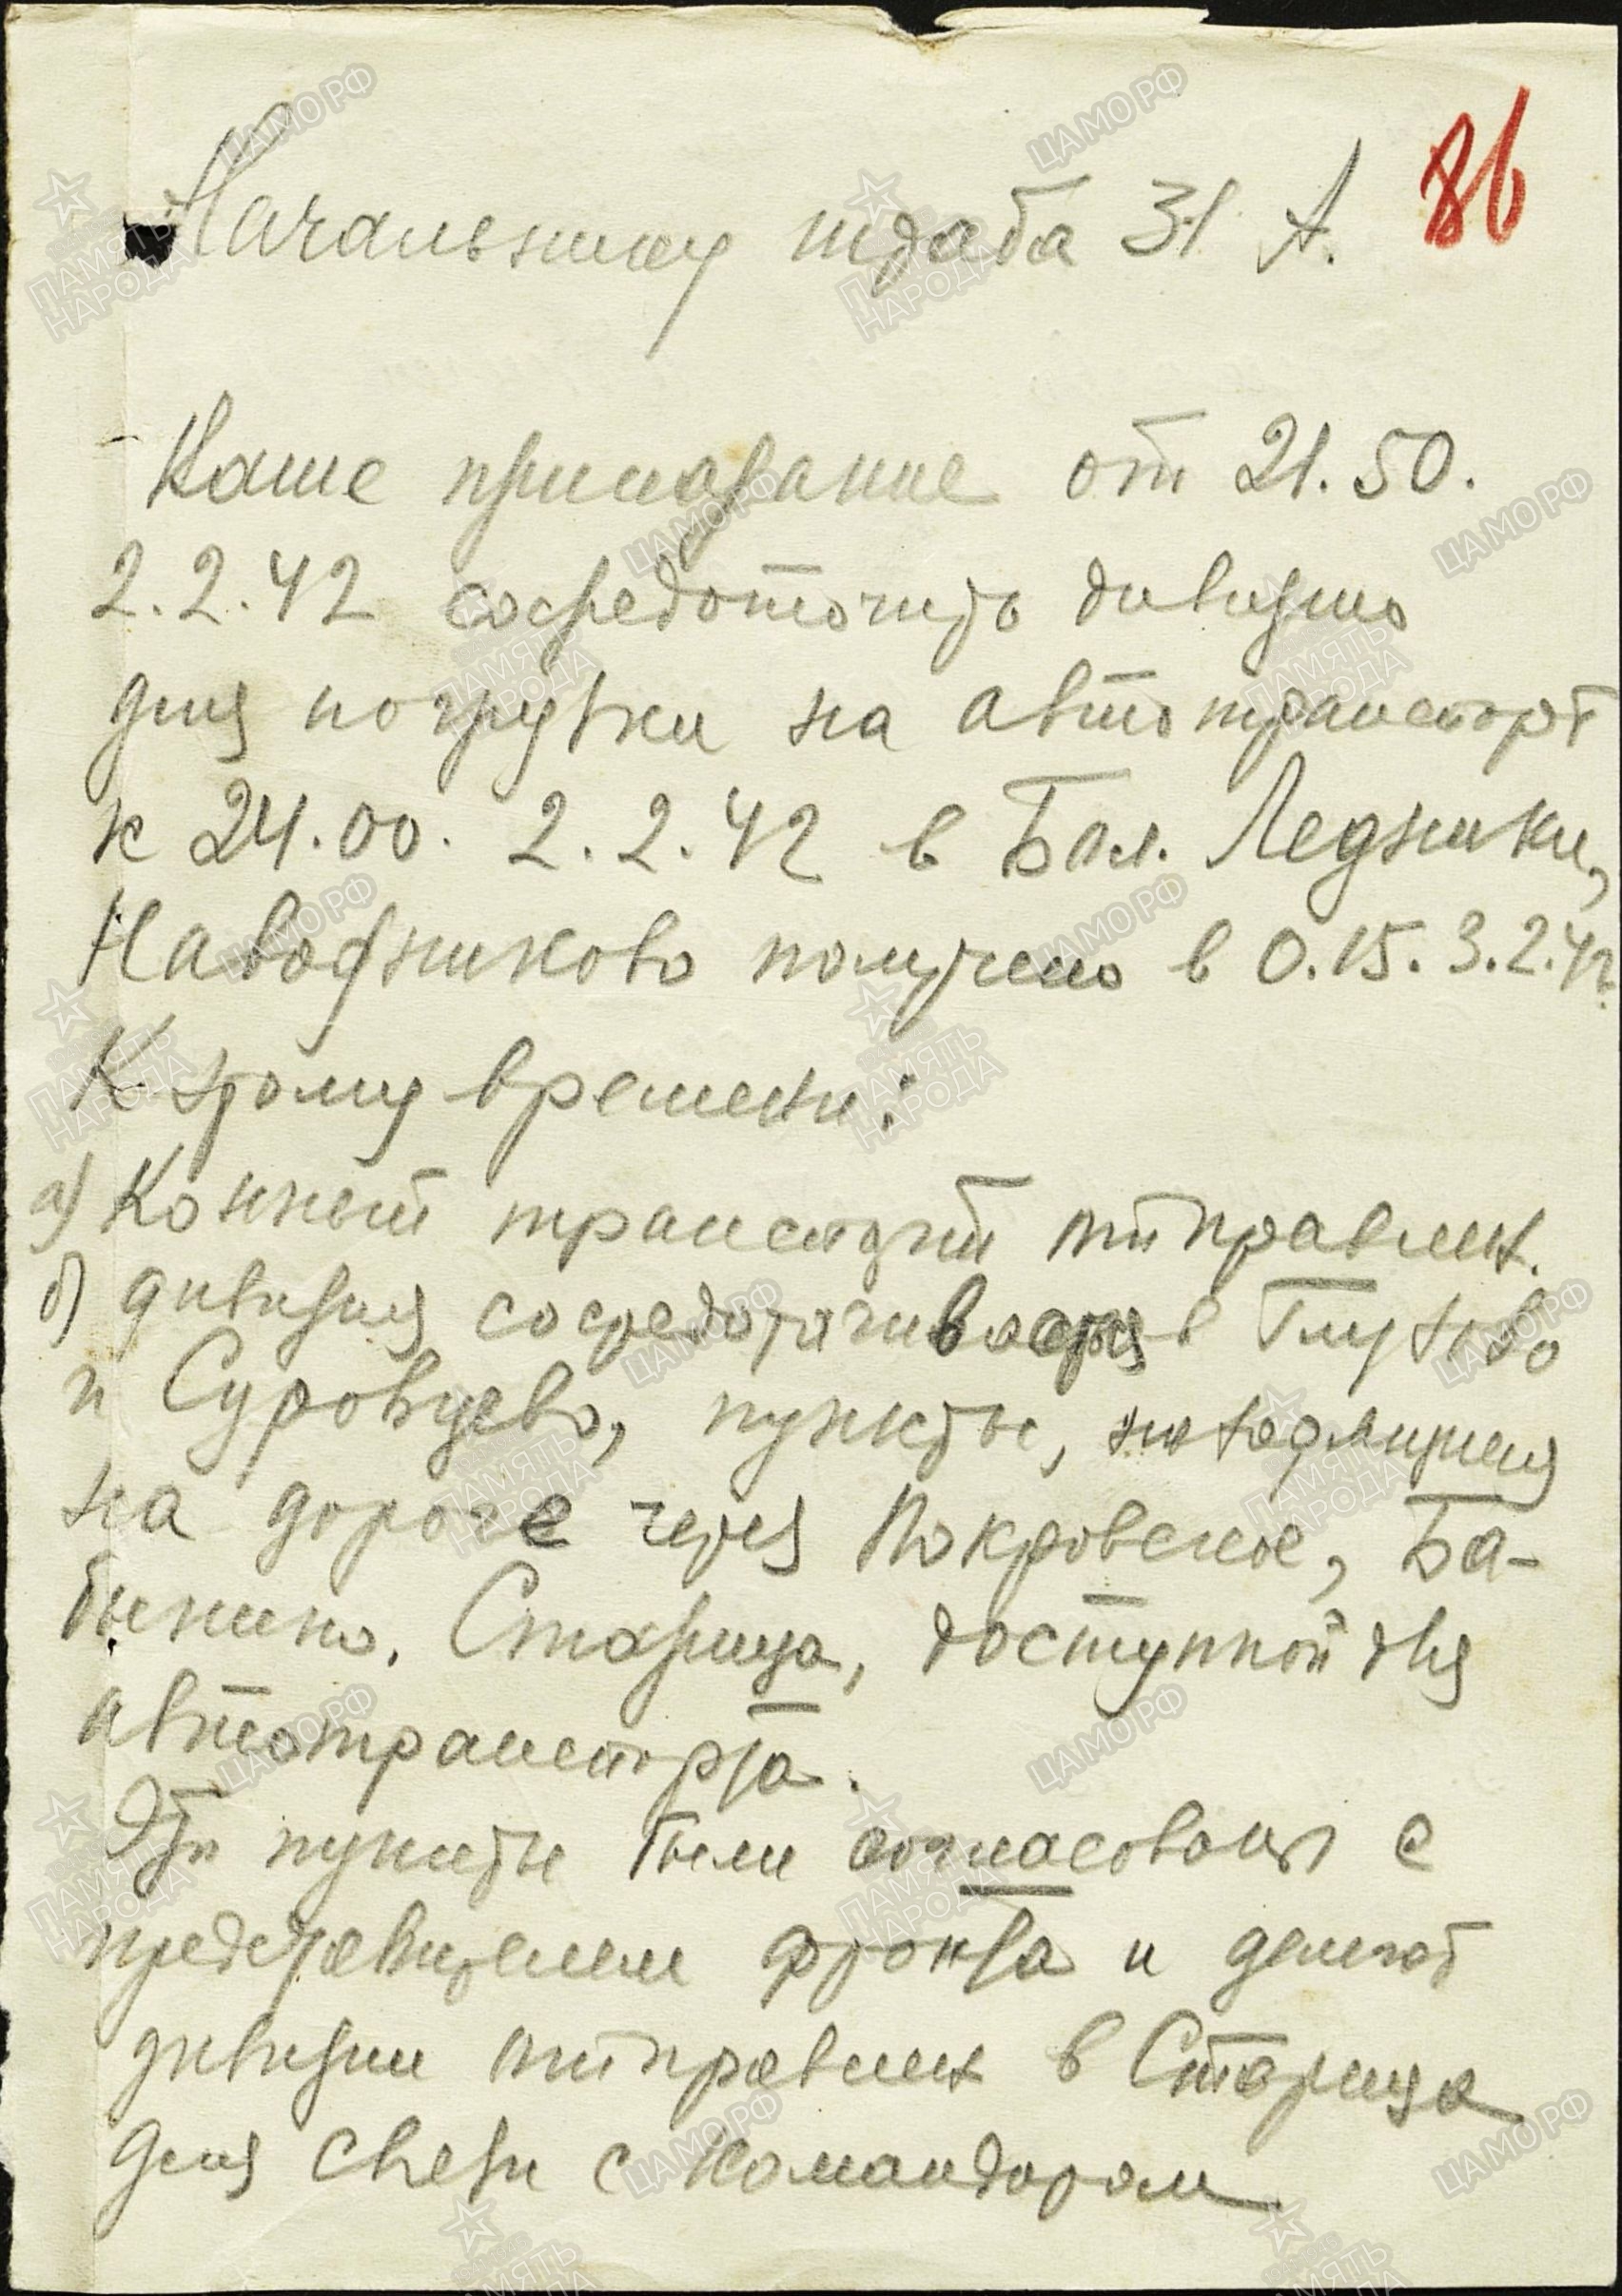 86
Начальнику штаба 31 А.
Ваше приказание от 21.50.
2.2.42 сосредоточить дивизию
для погрузки на автотранспорт
к 24.00. 2.2.42 в Бол. Ледники,
получено в 0.15. 3.2.42.
К этому времени:
а) Конный транспорт отправлен.
б) дивизия сосредотачивается в Глухово
и Суровцево, пункты, находящиеся
на дороге через Покровское, Ба-
бынино, Старица, доступной для
автотранспорта.
Эти пункты были согласованы с
представителем фронта и делегат
дивизии отправлен в Старица
для связи с командором